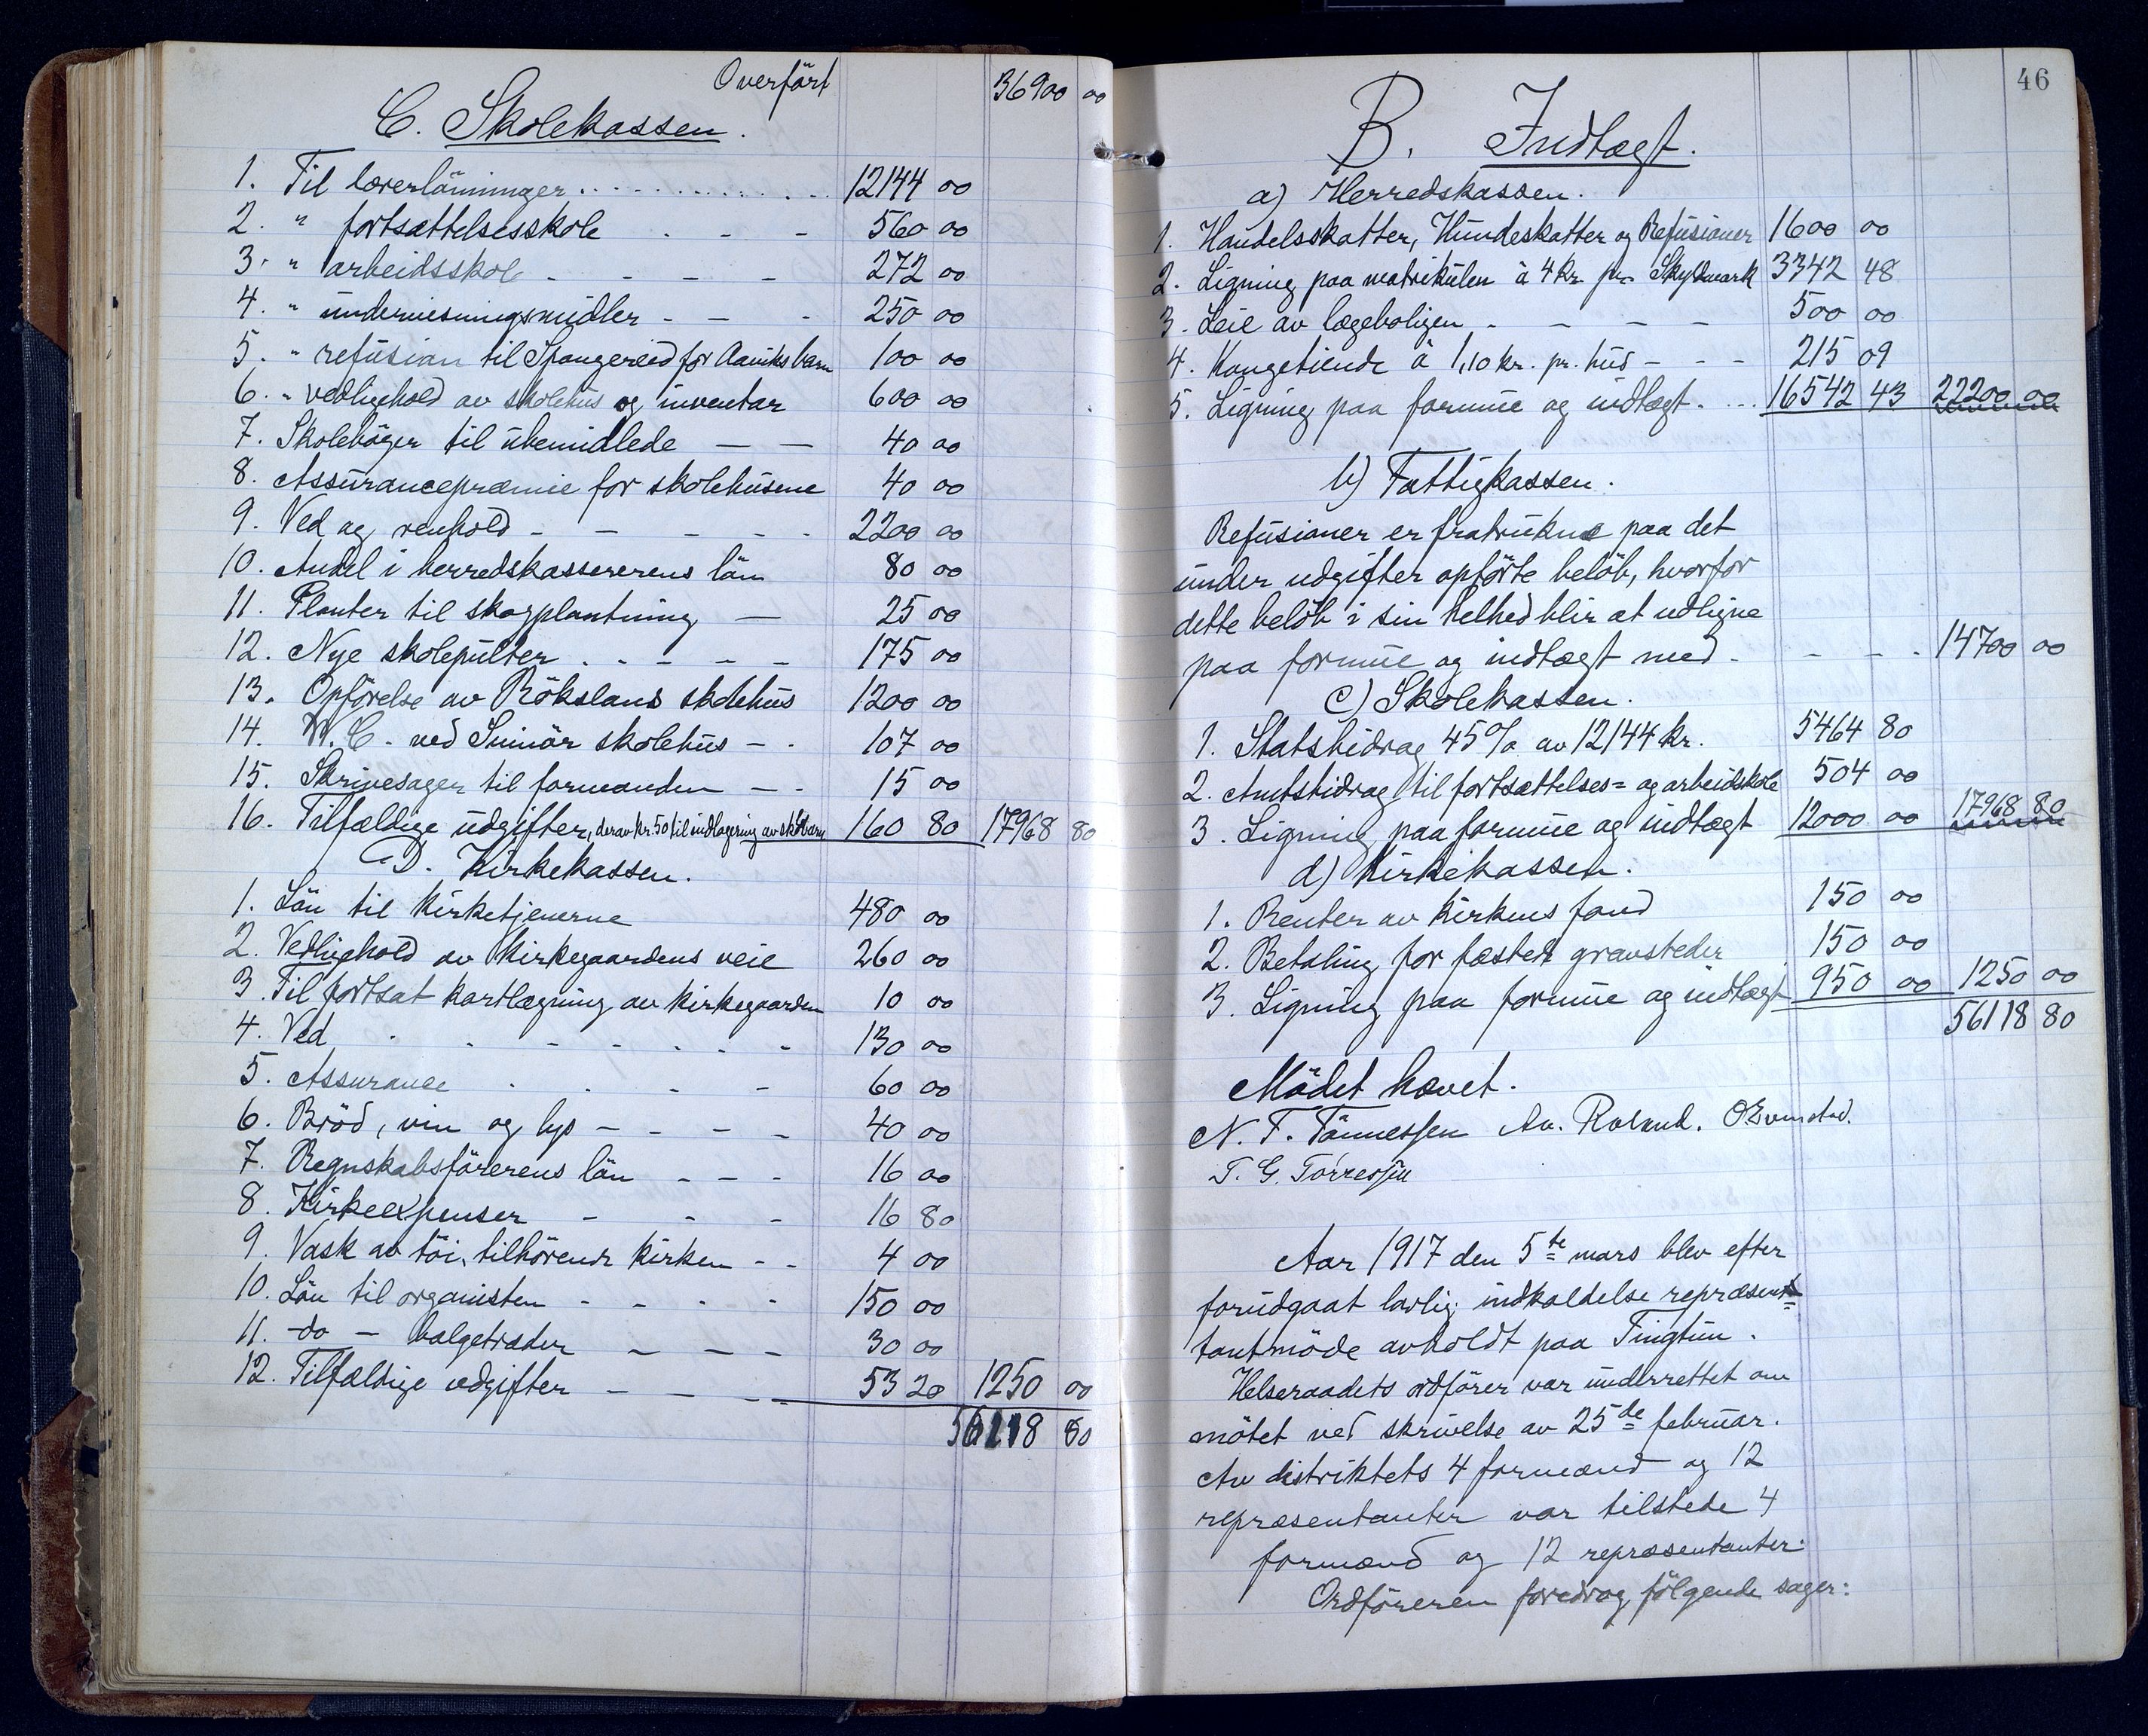 Overført 36900 00
C. Skolekassen.
1. Til lærerlönninger 12144 00
2. " fortsættelsesskole - - - 560 00
3. " arbeidsskole - - - - 272 00
4. " undervisningsmidler - - - 250 00
5. " refusion til Spangereid for Aaviks barn 100 00
6. " vedligehold av skolehus og inventar 600 00
7. Skoleböger til ubemidlede - - 40 00
8. Assurancepræmie for skolehusene 40 00
9. Ved og renhold - - - - - 2200 00
10. Andel i herredskassererens lön 80 00
11. Planter til skogplantning - 25 00
12. Nye skolepulter - - - - - 175 00
13. Opförelse av Röksland skolehus 1200 00
14. W.C. ved skolehus - - 107 00
15. Skrivesager til formanden - - 15 00
16. Tilfældige udgifter, derav kr. 50 til indlogering av skolebarn 160 80 17968 80
D. Kirkekassen.
1. Lön til kirketjenerne 480 00
2. Vedligehold av kirkegaardens veie 260 00
3. Til fortsat kartlægning av kirkegaarden 10 00
4. Ved - - - - - - - 130 00
5. Assurance - - - - 60 00
6. Bröd, vin og lys - - - - 40 00
7. Regnskabsförerens lön - - - 16 00
8. Kirkeexpenser - - - 16 80
9. Vask av töi, tilhörende kirken - - 4 00
10. Lön til organisten - - - - 150 00
11. -do- balgetræder - - - 30 00
12. Tilfældige udgifter - - - - 53 20 1250 00
56118 80
46
B. Indtægt.
a) Herredskassen.
1. Handelsskatter, Hundeskatter og Refusioner 1600 00
2. Ligning paa matrikulen à 4 kr. pr. Skyldmark 3342 48
3. Leie av lægeboligen - - - - 500 00
4. Kongetiende à 1,10 kr. pr. hud - - - 215 09
5. Ligning paa formue og indtægt - - - 16542 43 22200 00
b) Fattigkassen.
Refusioner er fratrukne paa det
under udgifter opförte belöb, hvorfor
dette belöb i sin helhed blir at udligne
paa formue og indtægt med - - - - 14700 00
c) Skolekassen.
1. Statsbidrag 45% av 12144 kr. 5464 80
2. Amtsbidrag til fortsættelses= og arbeidskole 504 00
3. Ligning paa formue og indtægt 12000 00 17968 80
d) Kirkekassen.
1. Renter av kirkens fond 150 00
2. Betaling for fæstede gravsteder 150 00
3. Ligning paa formue og indtægt 950 00 1250 00
56118 80
Mödet hævet.
N. F. Tönnessen Av. Roland.
T. G. Torressen
Aar 1917 den 5te mars blev efter
forudgaat lovlig indkaldelse repræsen=
tantmöde avholdt paa Tingtun.
Helseraadets ordförer var underrettet om
mötet ved skrivelse av 25de februar.
Av distriktets 4 formænd og 12
repræsentanter var tilstede 4
formænd og 12 repræsentanter.
Ordföreren foredrog følgende sager: